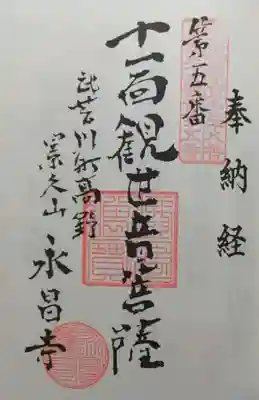 奉納経
第五番
十一面観世音菩薩
武芸川町高野
永昌寺